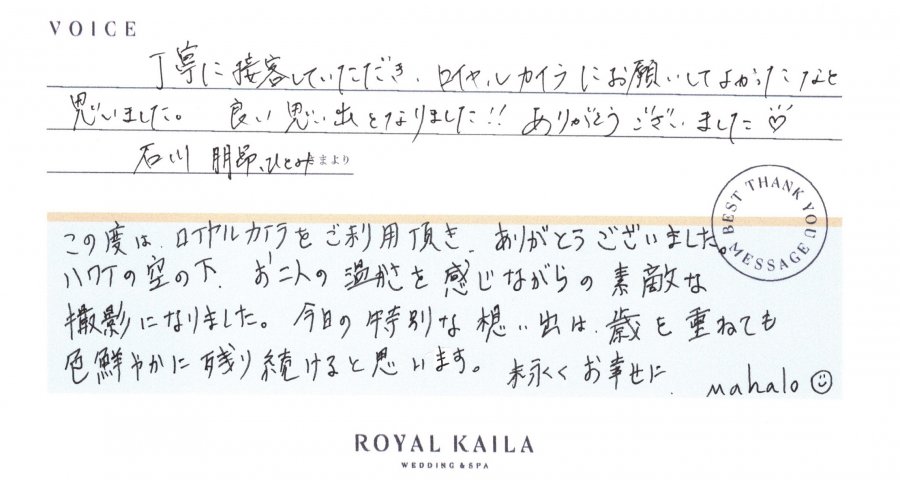 VOICE
丁寧に接客していただき、ロイヤルカイラにお願いしてよかったなと
思いました。 良い思い出となりました!! ありがとうございました♡
石川 朋昂、ひとみさまより
BEST THANK YOU MESSAGE
この度は、ロイヤルカイラをご利用頂き、ありがとうございました。
ハワイの空の下、お二人の温かさを感じながらの素敵な
撮影になりました。今日の特別な想い出は、歳を重ねても
色鮮やかに残り続けると思います。 末永くお幸せに. mahalo ☺
ROYAL KAILA
WEDDING & SPA